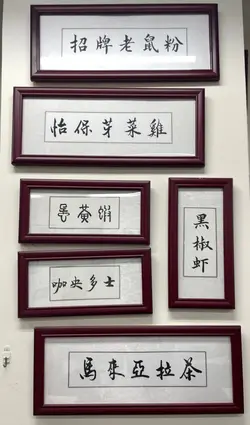 招牌老鼠粉
怡保芽菜雞
黑椒虾
咖央多士
馬來亞拉茶